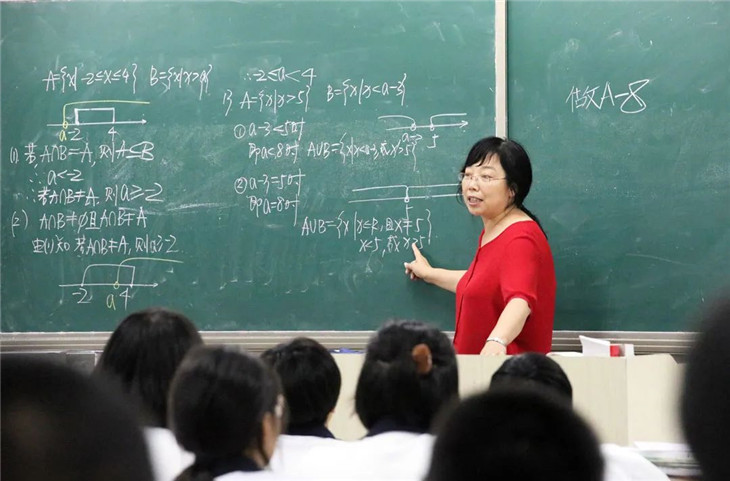 A={x|-2≤x≤4} B={x|x>a}
a -2 4
(1) 若A∩B=A,则A⊆B
∴a<-2
∴若A∩B≠A,则a≥-2
(2) A∩B≠∅且A∩B≠A
由(1)知 若A∩B≠A,则a≥-2
-2 a 4
∴-2≤a<4
1) A={x|x>5} B={x|x<a-3}
①a-3<5时
即a<8时 A∪B={x|x<a-3,或x>5}
a-3 5
②a-3=5时
即a=8时
5
A∪B={x|x∈R,且x≠5}
x<5,或x>5
A-8